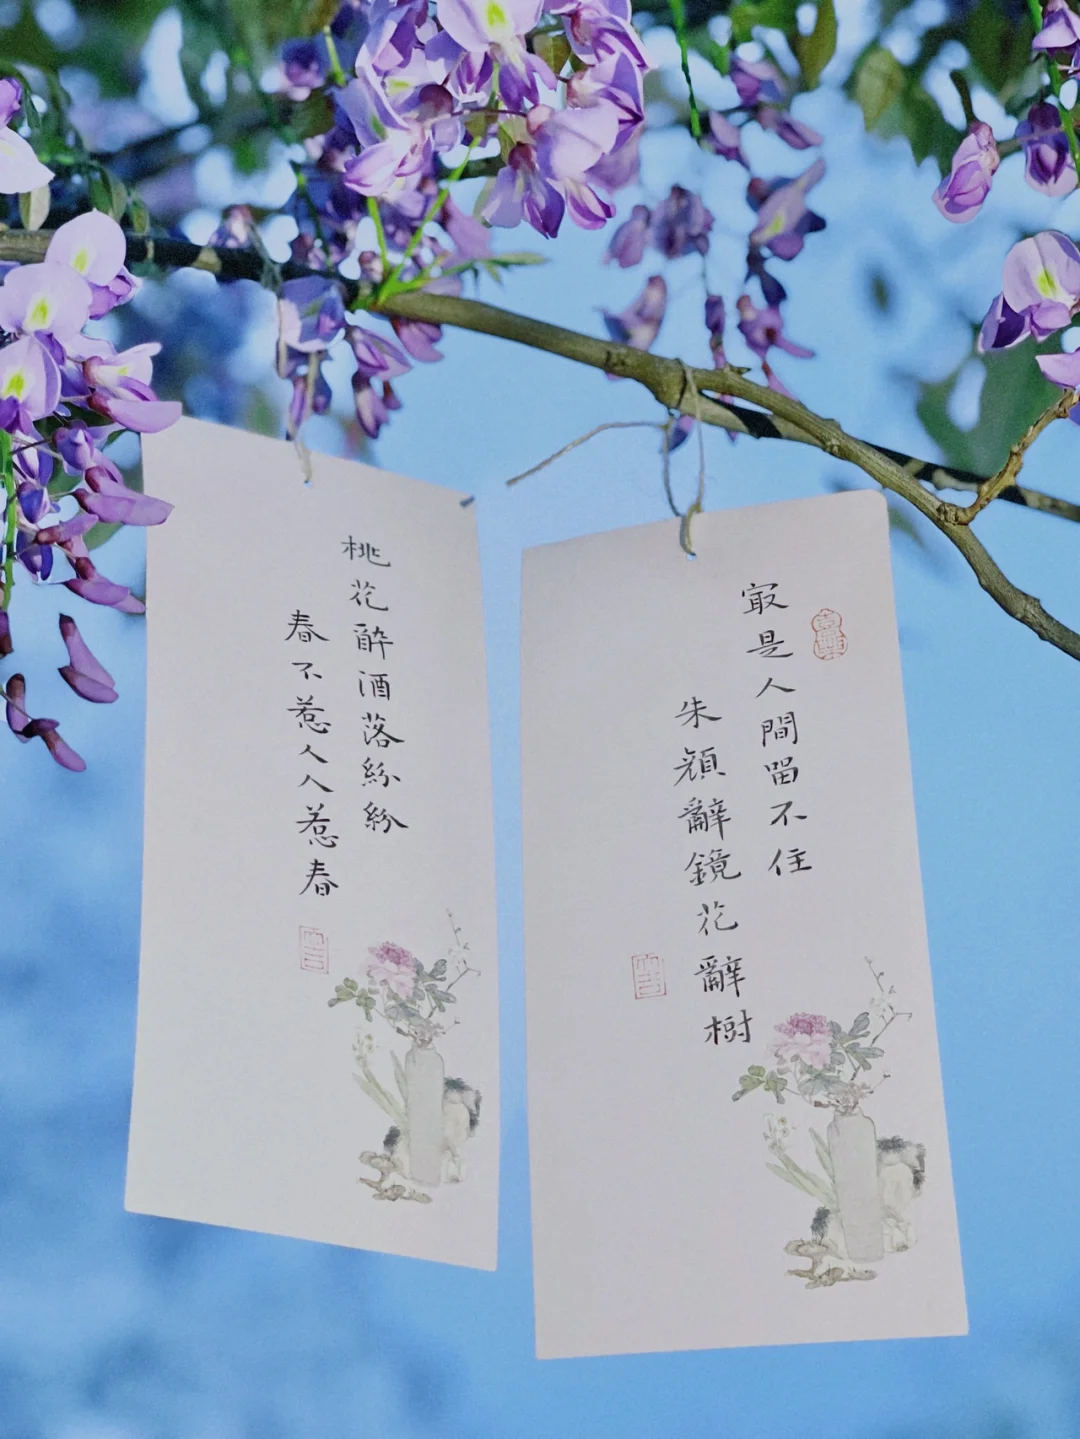 寂是人間畱不住
朱顔辭鏡花辭樹
桃花醉酒落紛紛
春不惹人人惹春